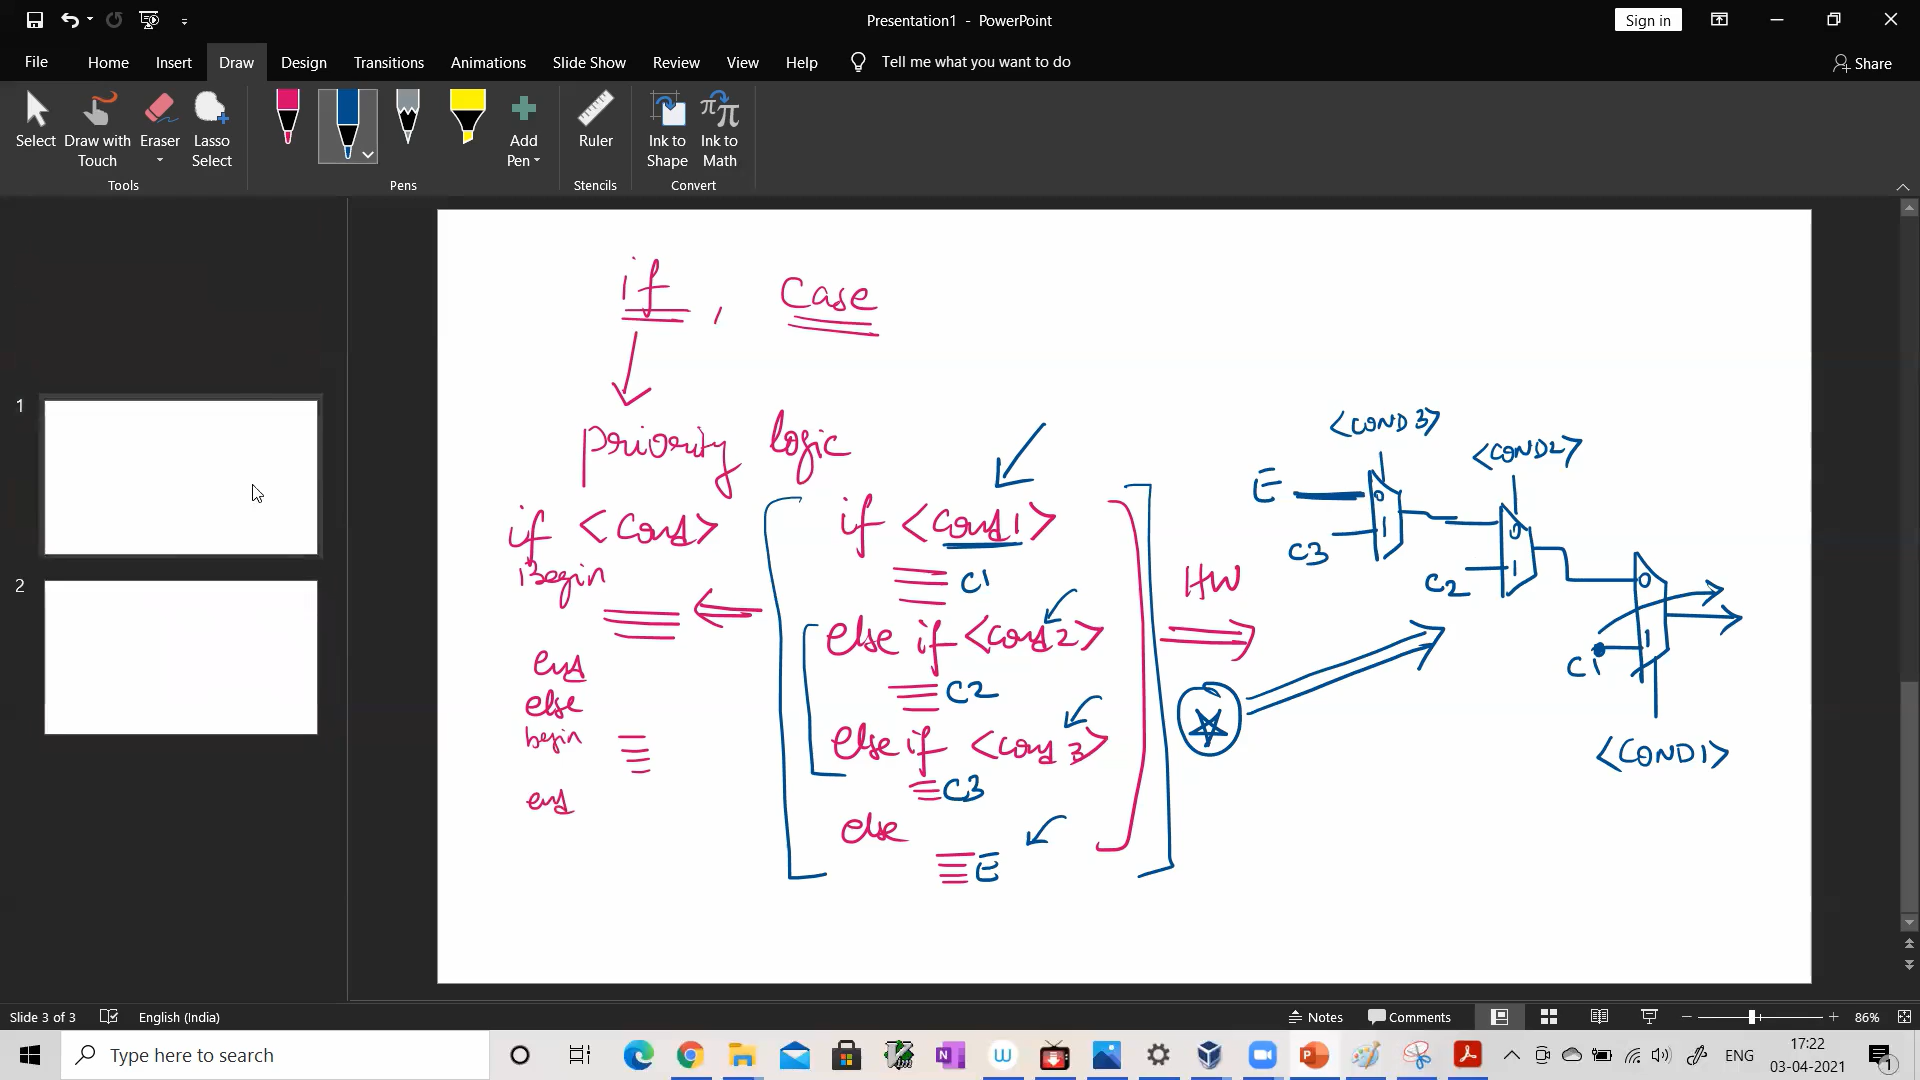 Presentation1 - PowerPoint
Sign in
File Home Insert Draw Design Transitions Animations Slide Show Review View Help Tell me what you want to do
Share
Select
Draw with Touch
Eraser
Lasso Select
Add Pen
Ruler
Ink to Shape
Ink to Math
Tools Pens Stencils Convert
1
2
if , Case
priority logic
if <Cond>
Begin
end
else
begin
end
if <Cond1>
C1
else if <Cond2>
C2
else if <Cond3>
C3
else
E
HW
<COND3>
<COND2>
E
0
1
C3
0
1
C2
0
1
C1
<COND1>
Slide 3 of 3 English (India)
Notes Comments 86%
Type here to search
ENG
17:22
03-04-2021
1